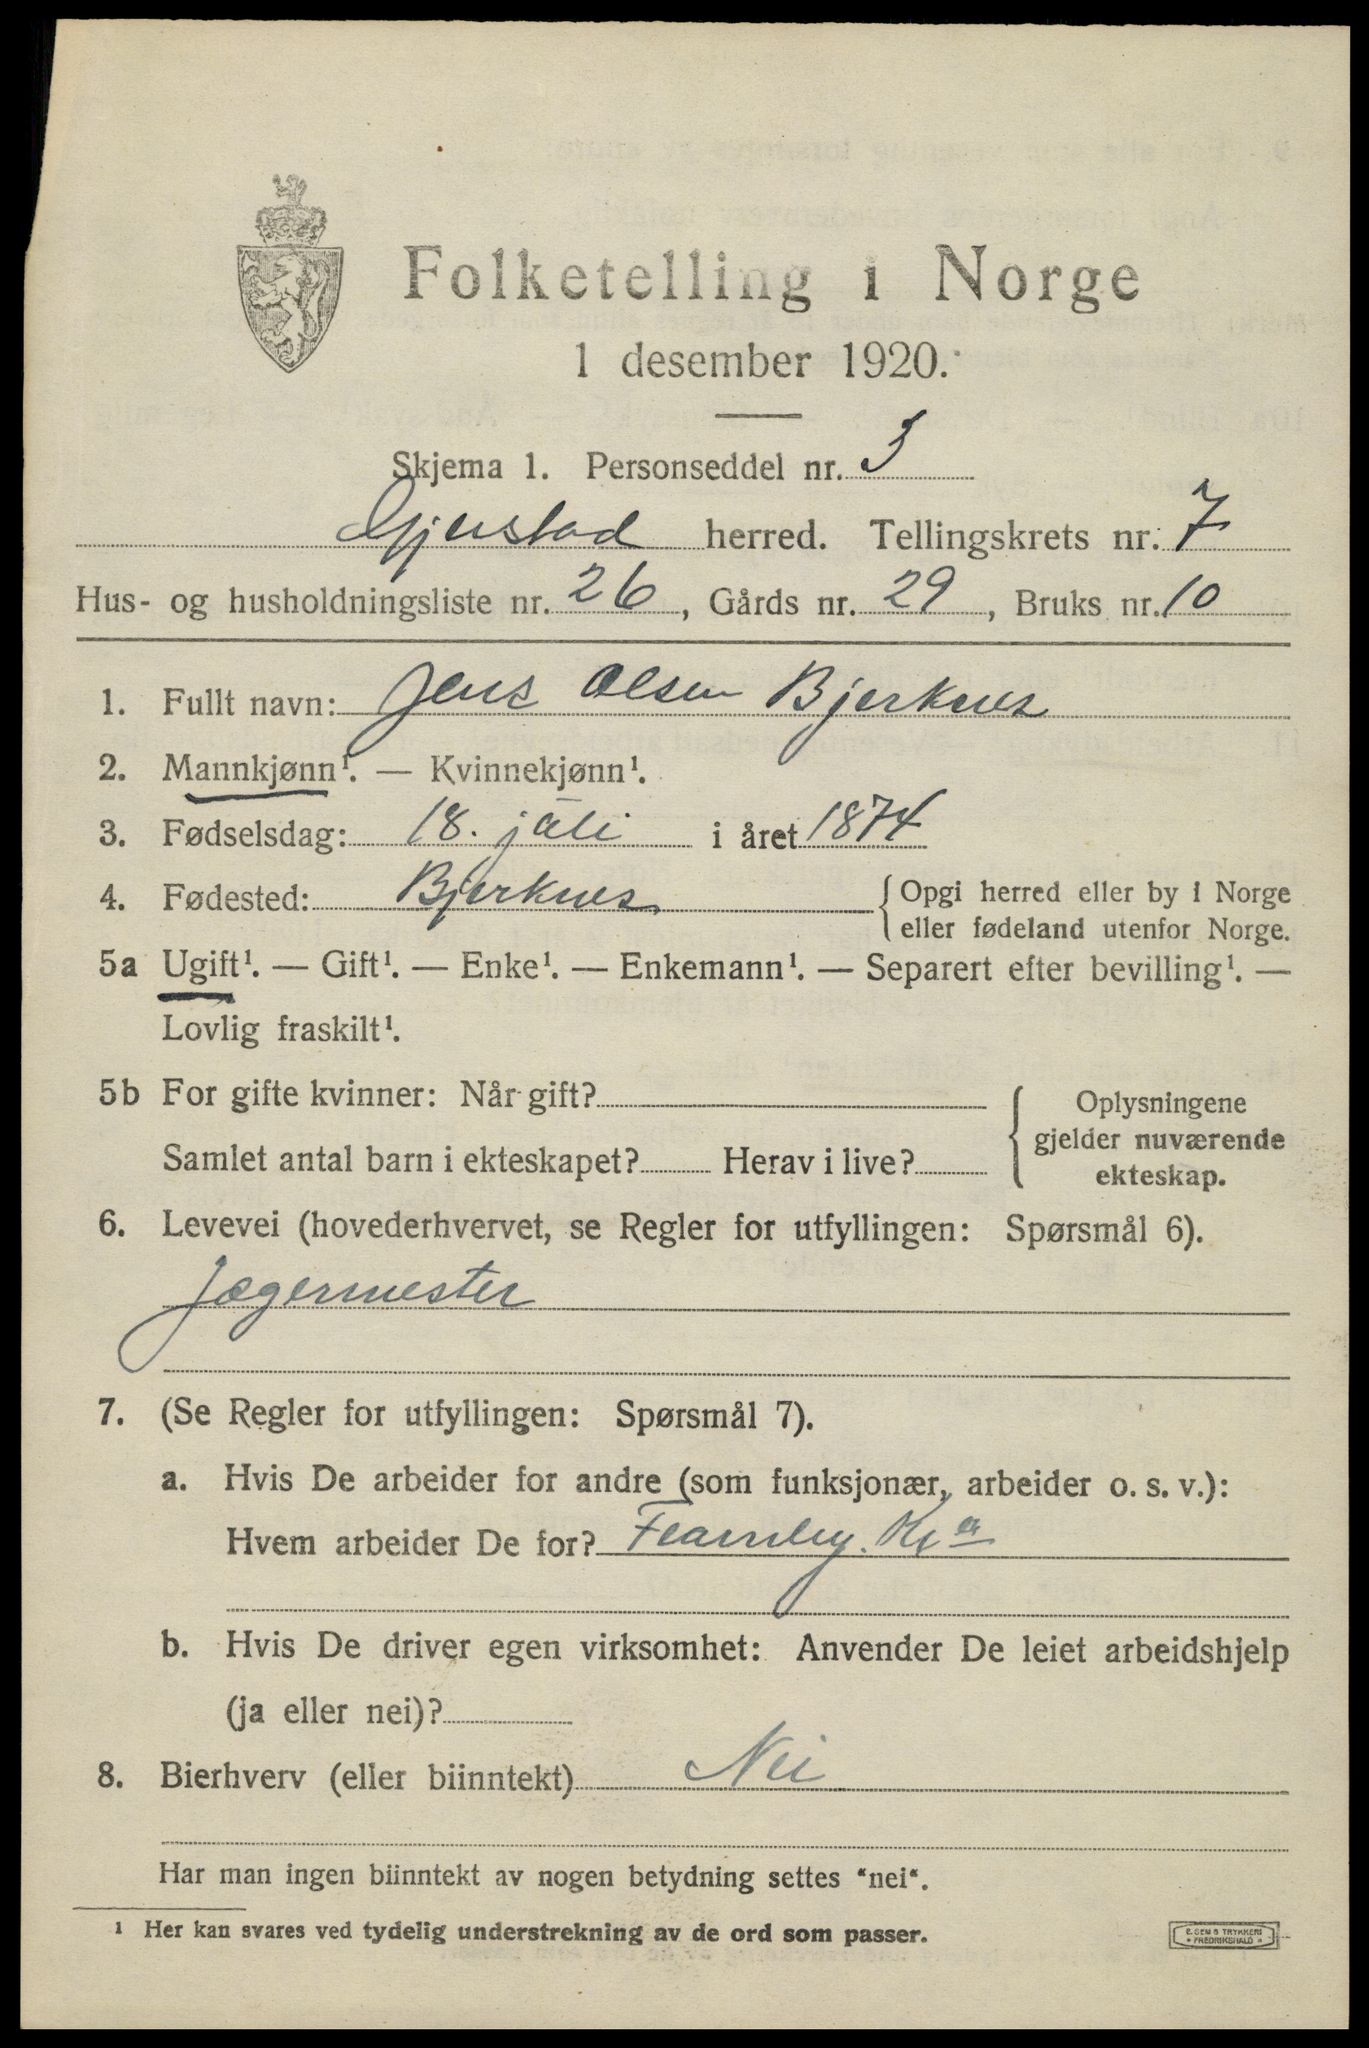 Folketelling i Norge
1 desember 1920.
Skjema 1. Personseddel nr. 3
Gjerstad herred. Tellingskrets nr. 7
Hus- og husholdningsliste nr. 26, Gårds nr. 29, Bruks nr. 10
1. Fullt navn: Jens Olsen Bjerknes
2. Mannkjønn¹. — Kvinnekjønn¹.
3. Fødselsdag: 18. juli i året 1874
4. Fødested: Bjerknes { Opgi herred eller by i Norge
eller fødeland utenfor Norge.
5a Ugift¹. — Gift¹. — Enke¹. — Enkemann¹. — Separert efter bevilling¹. —
Lovlig fraskilt¹.
5b For gifte kvinner: Når gift?
Samlet antal barn i ekteskapet? Herav i live?
{ Oplysningene
gjelder nuværende
ekteskap.
6. Levevei (hovederhvervet, se Regler for utfyllingen: Spørsmål 6).
Jægermester
7. (Se Regler for utfyllingen: Spørsmål 7).
a. Hvis De arbeider for andre (som funksjonær, arbeider o. s. v.):
Hvem arbeider De for? Fearnley. Kra
b. Hvis De driver egen virksomhet: Anvender De leiet arbeidshjelp
(ja eller nei)?
8. Bierhverv (eller biinntekt) Nei
Har man ingen biinntekt av nogen betydning settes "nei".
¹ Her kan svares ved tydelig understrekning av de ord som passer.
E. SEM'S TRYKKERI
FREDRIKSHALD